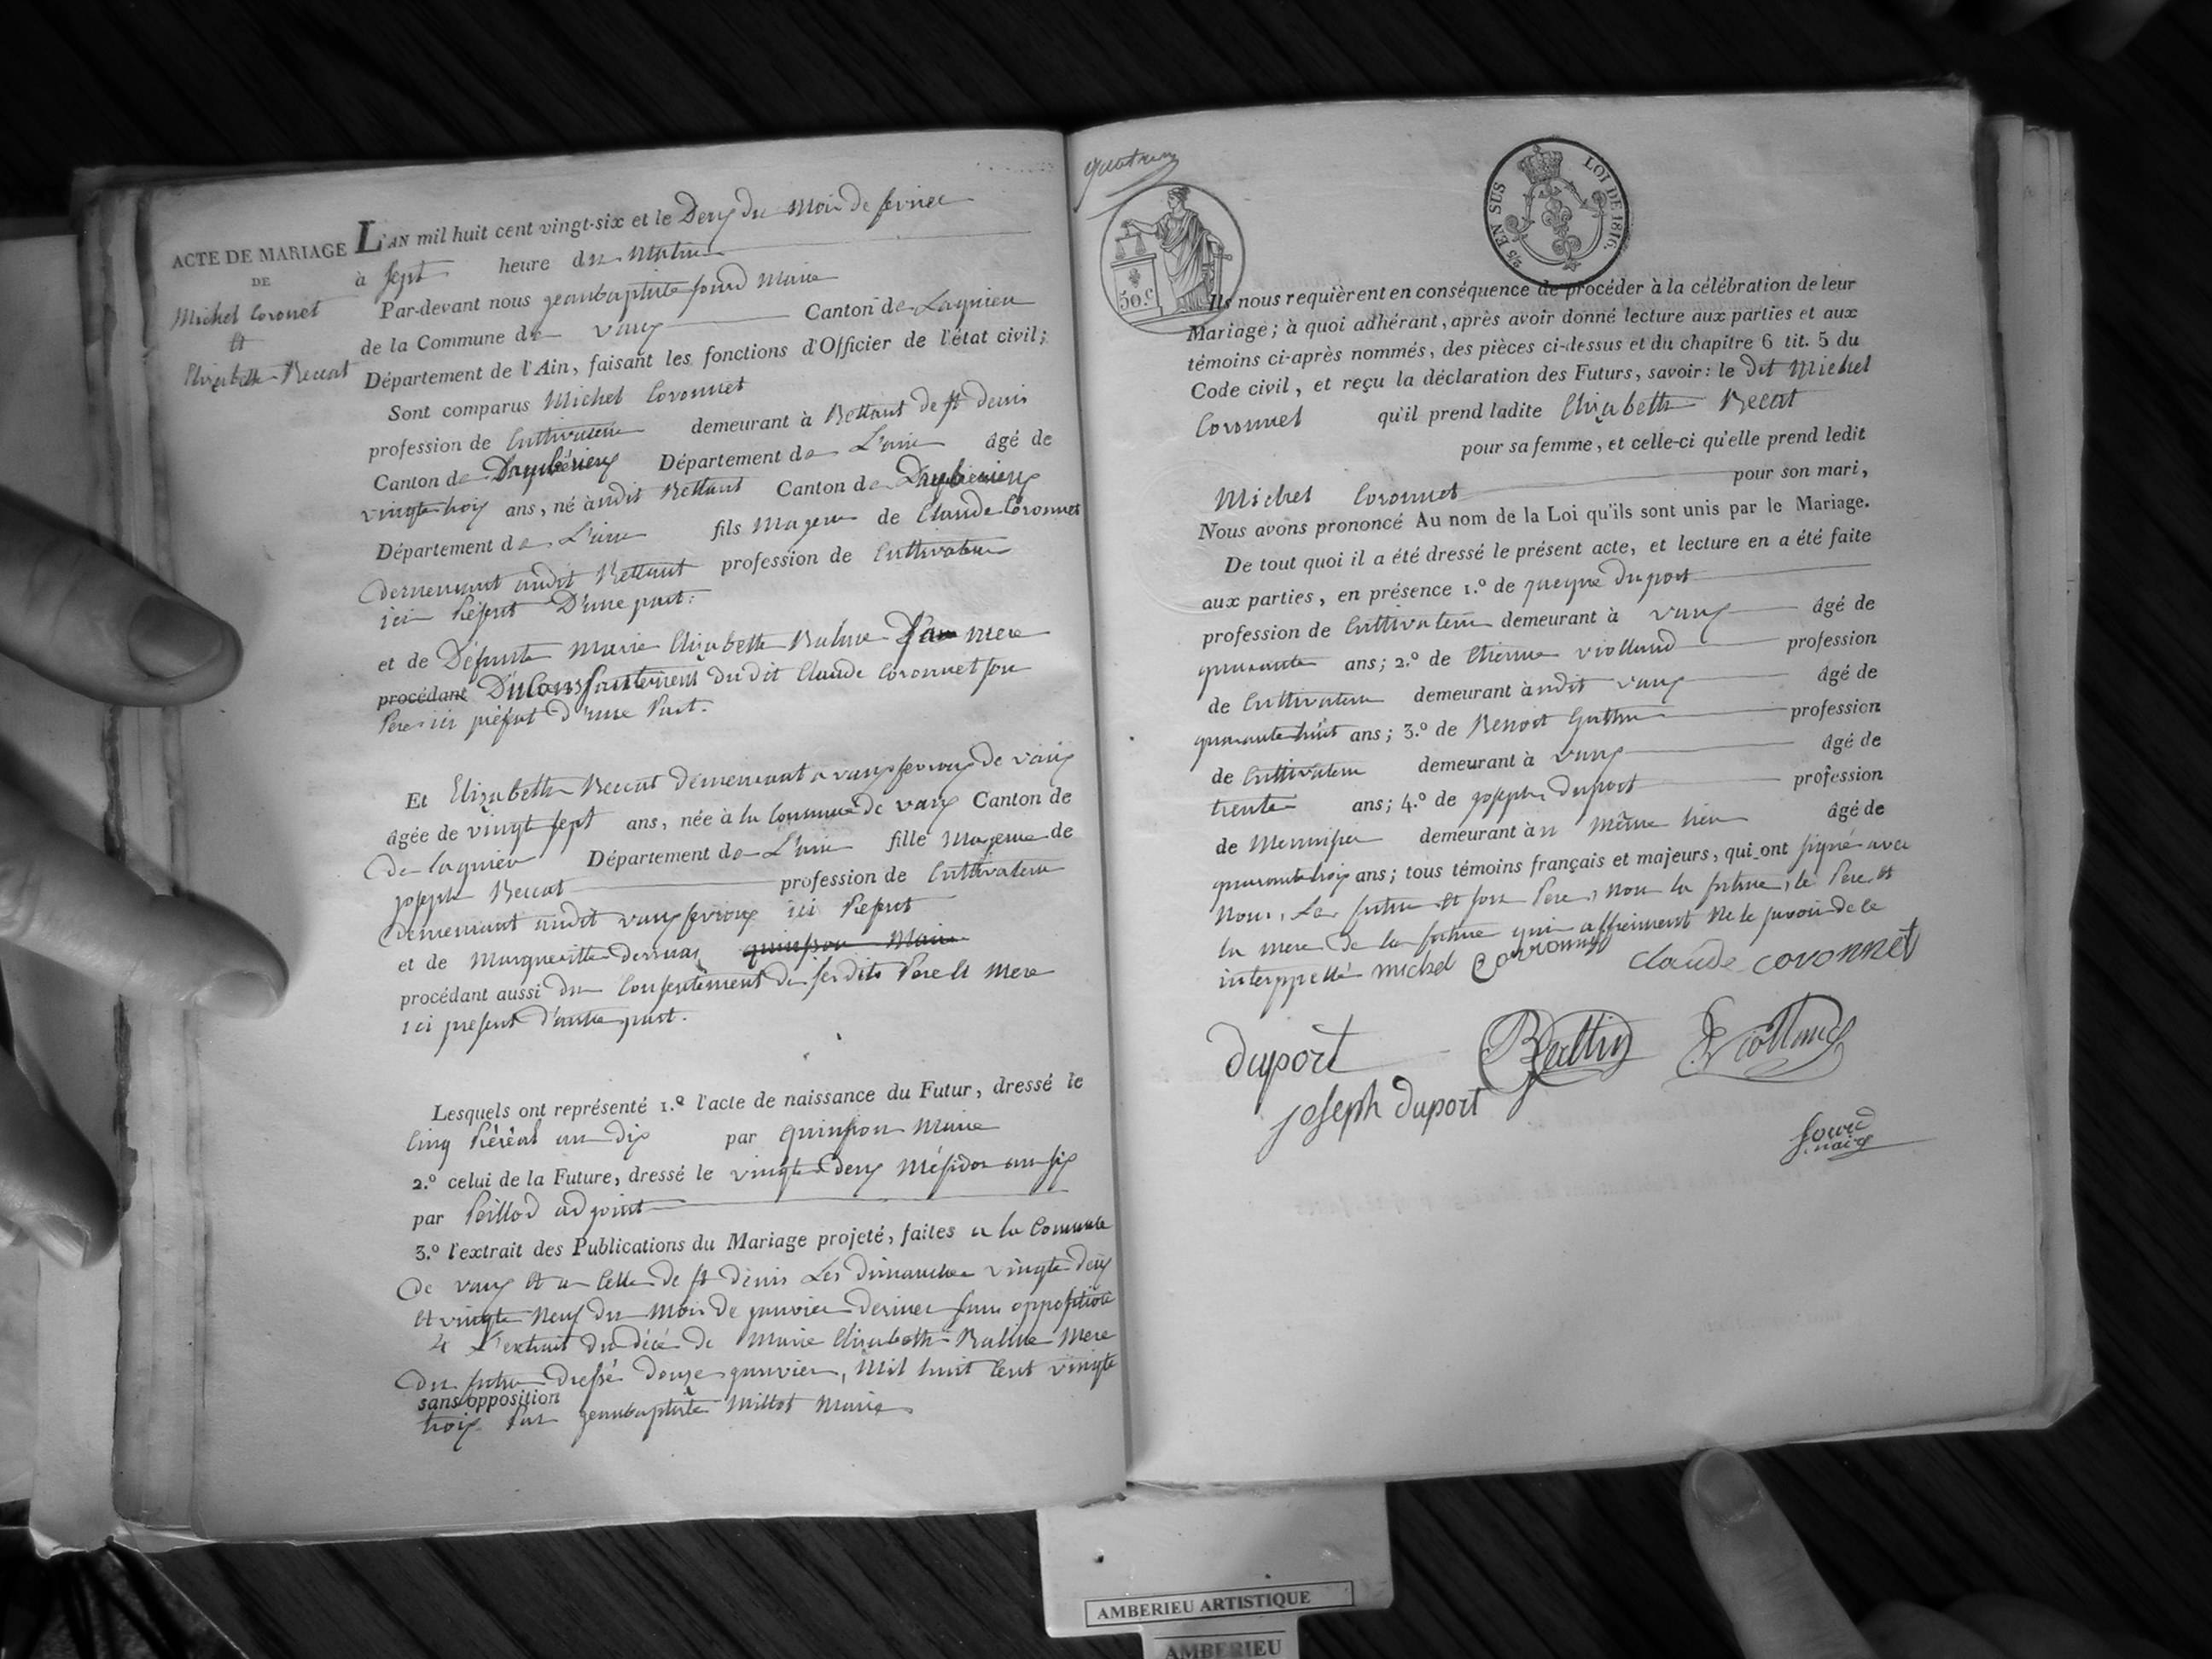 ACTE DE MARIAGE
DE
Michel Coronet
et
Elizabette Beccat
L'AN mil huit cent vingt-six et le Deux du Mois de fevrier
à sept heure du Matin
Par-devant nous jeanbaptiste fourd Maire
de la Commune de vaux Canton de Lagnieu
Département de l'Ain, faisant les fonctions d'Officier de l'état civil;
Sont comparus Michel Coronnet
profession de Cultivateur demeurant à Bettant de st denis
Canton de D'ambérieux Département de L'ain âgé de
vingt trois ans, né audit Bettant Canton de D'ambérieux
Département de L'ain fils Mageur de Claude Coronnet
demeurant audit Bettant profession de Cultivateur
ici Présent D'une part:
et de Défunte Marie Elizabette Balme Mere
procédant Du Consantement du dit Claude Coronnet son
Pere ici présent d'une Part.
Et Elizabette Beccat demeurant a vaux fevroux de vaux
âgée de vingt sept ans, née à la Commune de vaux Canton de
de lagnieu Département de L'ain fille Mageure de
joseph Beccat profession de Cultivateur
demeurant audit vaux fevroux ici Présent
et de Margueritte quinson Maire
procédant aussi du Consentement de sesdits Pere et Mere
ici présent d'autre part.
Lesquels ont représenté 1.º l'acte de naissance du Futur, dressé le
Cinq Préréal an dix par quinson Maire
2.º celui de la Future, dressé le vingt Deux Mésidor an six
par Peillod adjoint
3.º l'extrait des Publications du Mariage projeté, faites a la Commune
de vaux et a Celle de st denis Les dimanche vingt deux
et vingt Neuf du Mois de janvier dernier sans opposition
4 L'extrait du décé de Marie Elizabeth Balme Mere
du futur Dressé douze janvier, Mil huit Cent vingt
sans opposition
trois Par jeanbaptiste Millet Maire
50.c
25 EN SUS
LOI DE 1816.
Ils nous requièrent en conséquence de procéder à la célébration de leur
Mariage; à quoi adhérant, après avoir donné lecture aux parties et aux
témoins ci-après nommés, des pièces ci-dessus et du chapitre 6 tit. 5 du
Code civil, et reçu la déclaration des Futurs, savoir: le dit Michel
Coronnet qu'il prend ladite Elizabette Beccat
pour sa femme, et celle-ci qu'elle prend ledit
Michel Coronnet pour son mari,
Nous avons prononcé Au nom de la Loi qu'ils sont unis par le Mariage.
De tout quoi il a été dressé le présent acte, et lecture en a été faite
aux parties, en présence 1.º de jacque Duport
profession de Cultivateur demeurant à vaux âgé de
quarante ans; 2.º de Etienne violland profession
de Cultivateur demeurant audit vaux âgé de
quarante huit ans; 3.º de Benoit profession
de Cultivateur demeurant à vaux âgé de
trente ans; 4.º de joseph duport profession
de Menuisier demeurant au même lieu âgé de
quarante trois ans; tous témoins français et majeurs, qui ont signé avec
Nous, Le futur et son Pere, Non la future, le Pere et
la mere de la future qui affirment Ne le savoir de ce
interppellé michel coronnet claude coronnet
duport violland
joseph duport
fourd
maire
AMBERIEU ARTISTIQUE
AMBERIEU